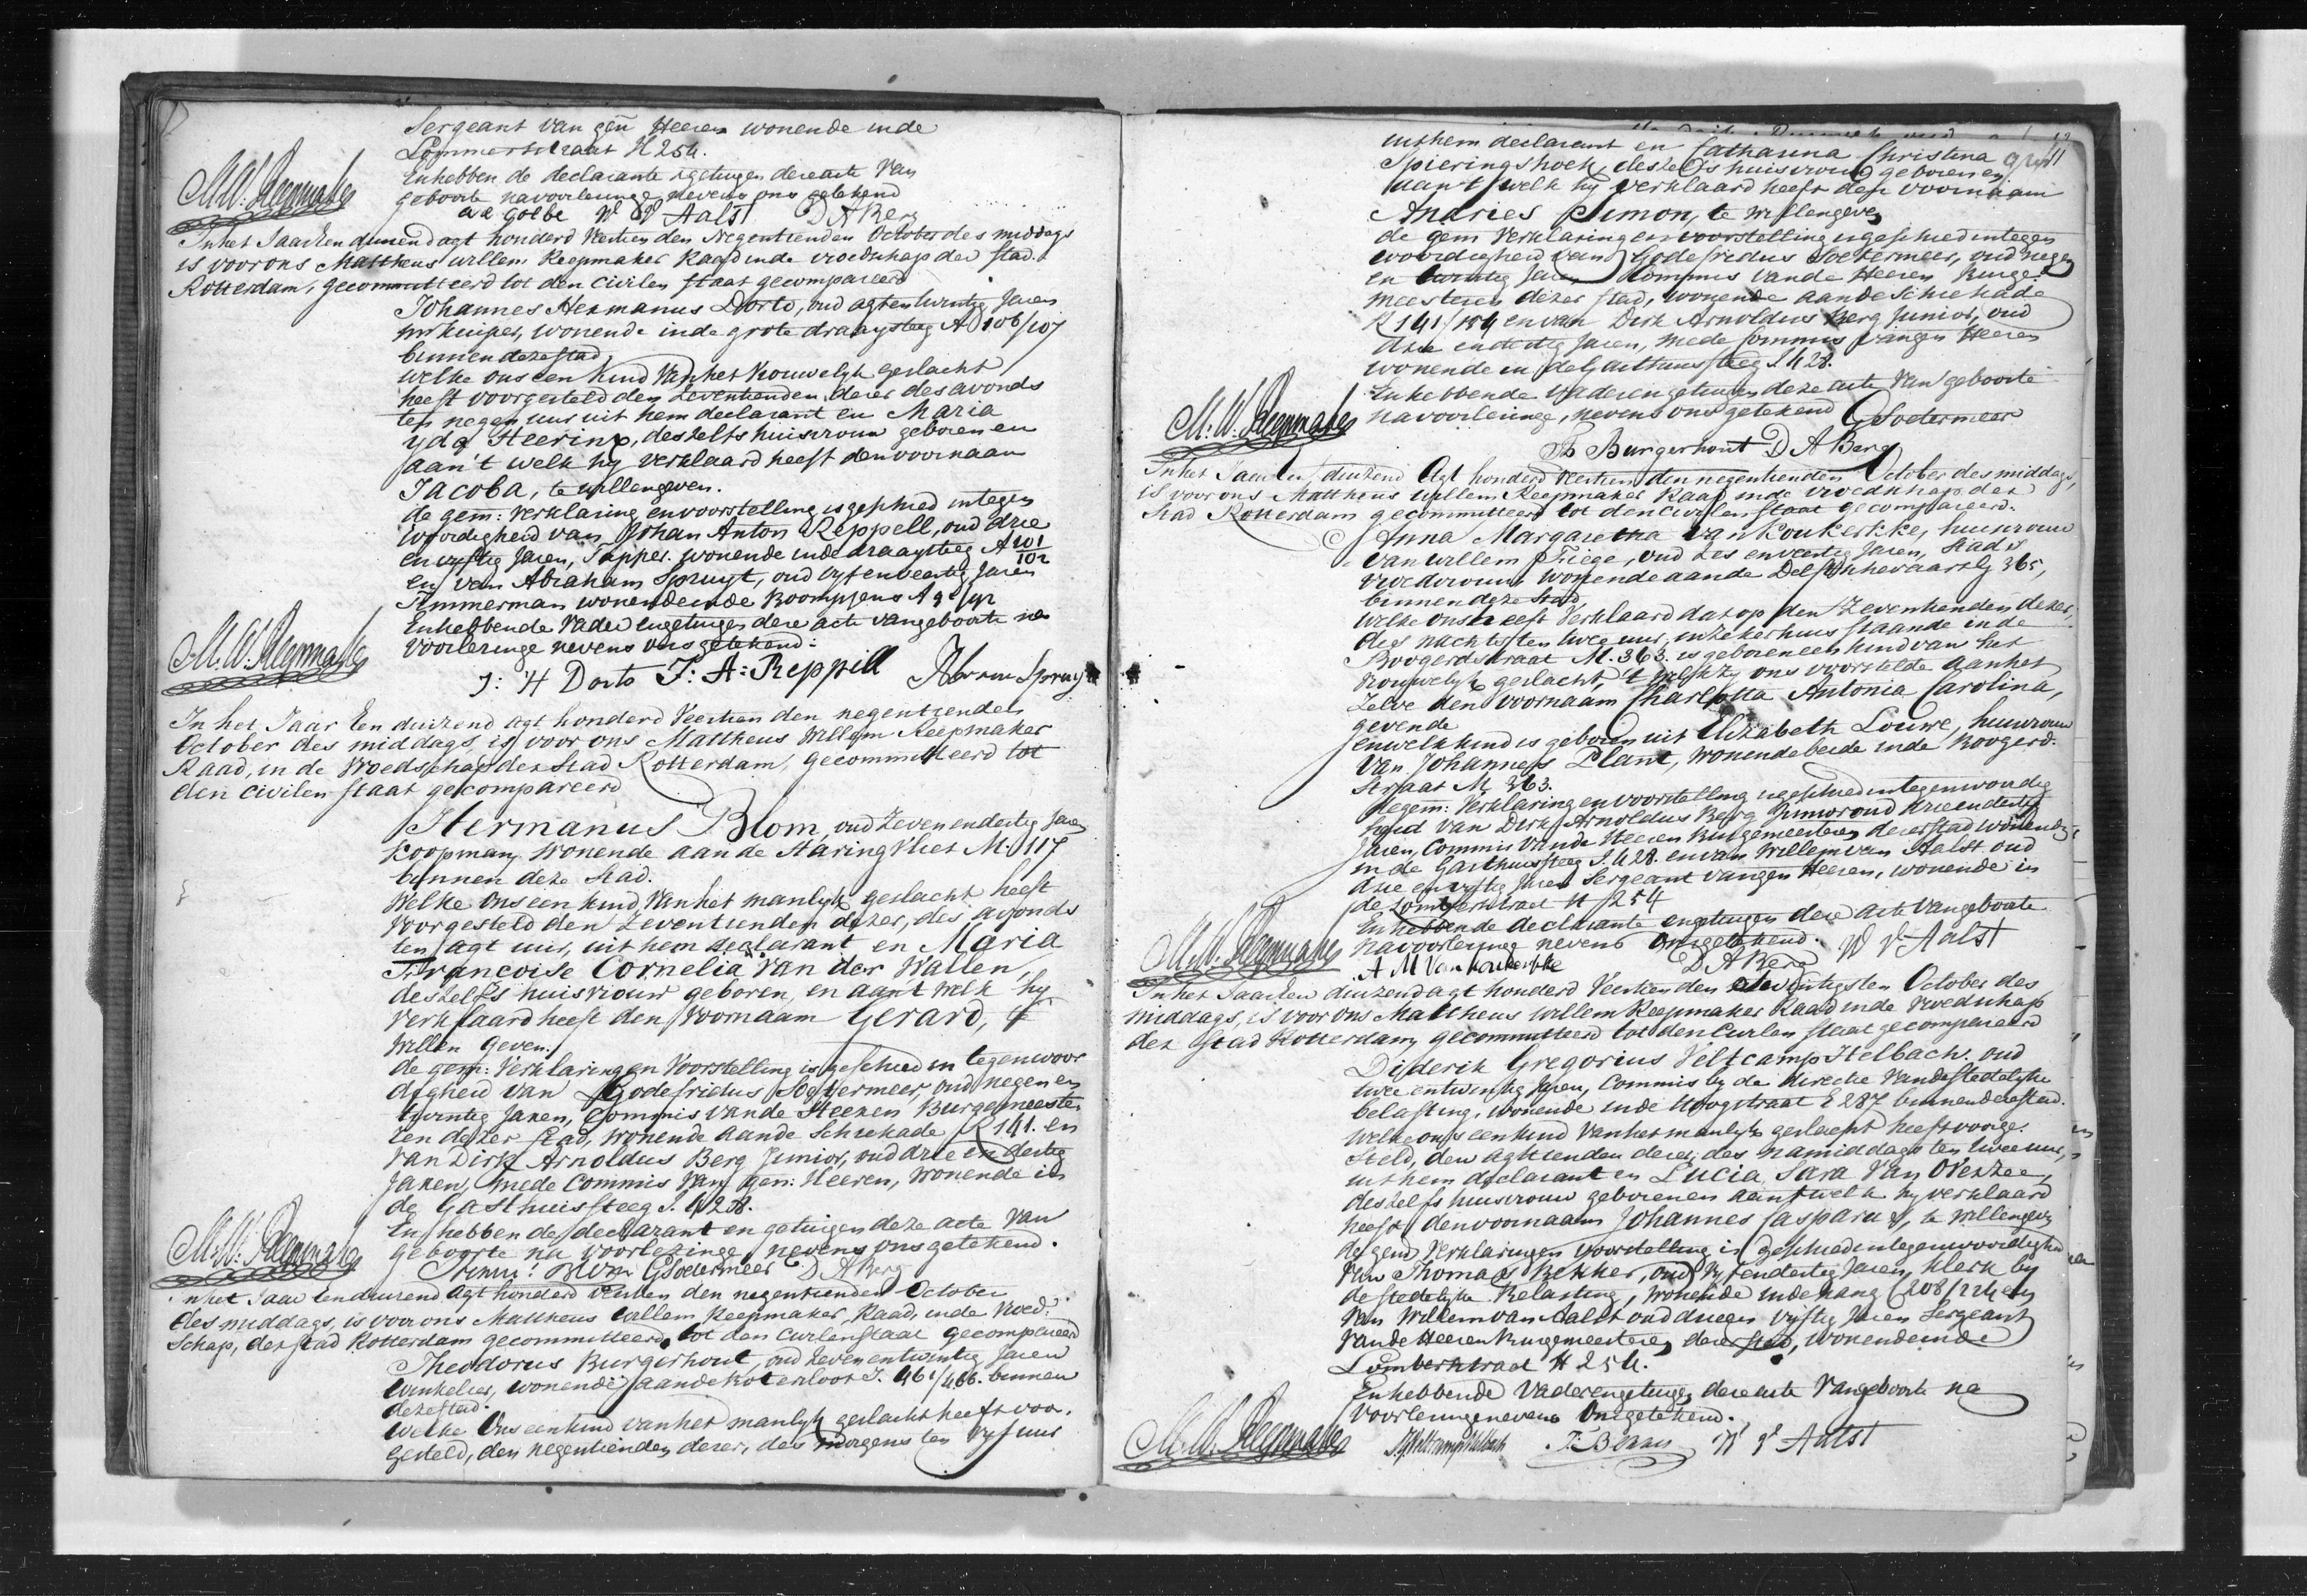 Sergeant van gen Heeren wonende inde
Lommertstraat H 254.
Enhebben de declarante & getuigen dese acte van
geboorte navoorlezinge nevens ons getekend
W V Aalst D A Berg
M.W. Reepmaker
In het Jaar Een duizend agt honderd Veertien den Negentienden October des middags
is voor ons Mattheus Willem Reepmaker Raad inde vroedschap der stad
Rotterdam, gecommitteerd tot den Civilen staat gecompareerd
Johannes Hermanus Dorto, oud agtentwintig Jaren
mr kuiper, wonende inde grote draaysteeg A 106/107
binnen dezestad
welke ons een kind van het Vrouwelyk geslacht
heeft voorgesteld den Zeventienden dezer des avonds
ten negen uur uit hem declarant en Maria
yda Heering, deszelfs huisvrouw geboren en
aan 't welk hy verklaard heeft den voornaam
Jacoba, te willengeven.
de gem: verklaring en voorstelling is geschied integen
woordigheid van Johan Anton Reppell, oud drie
en vyftig Jaren, Tapper. wonende inde draaysteeg A 101/102
en van Abraham Spruyt, oud vyf en veertig Jaren
Timmerman wonende inde Boompjens A
Enhebbende Vader engetuigen deze acte van geboorte na
voorlezinge nevens ons getekend:
M.W. Reepmaker
J: H Dorto J: A: Reppill Abram Spruyt
In het Jaar Een duizend agt honderd Veertien den negentienden
October des middags, is voor ons Mattheus Willem Reepmaker
Raad, in de Vroedschap der Stad Rotterdam, gecommitteerd tot
den civilen staat gecompareerd
Hermanus Blom, oud Zeven en dertig Jaren
Koopman, Wonende aan de Haringvliet M. 117
binnen deze stad.
Welke Ons een kind, van het manlyk geslacht heeft
Voorgesteld den Zeventienden dezer, des avonds
ten agt uur, uit hem declarant en Maria
Francoise Cornelia van der Wallen,
deszelfs huisvrouw geboren, en aan't welk hy
Verklaard heeft den Voornaam Gerard, te
Willen Geven.
de gem: Verklaring en Voorstelling is geschied in tegenwoor
digheid van Godefridus Soetermeer, oud negen en
twintig Jaren, Commis van de Heeren Burgemeeste
ren dezer stad, wonende aan de Schiekade R 141. en
van Dirk Arnoldus Berg Junior, oud drie en dertig
Jaren, mede Commis van gem: Heeren, Wonende in
de Gasthuissteeg J. 428.
En hebben de declarant en getuigen deze acte van
geboorte na voorlezinge, nevens ons getekend.
M.W. Reepmaker
Blom GSoetermeer D A Berg
In het Jaar Een duizend Agt honderd Veertien den negentienden October
des middags, is voor ons Mattheus Willem Reepmaker, Raad, inde Vroed-
Schap, der stad Rotterdam gecommitteerd, tot den civilen staat gecompareerd
Theodorus Burgerhout, oud Zeven en twintig Jaren
Winkelier, wonende aan de Kotersloot J. 461/466. binnen
dezestad.
Welke Ons een kind van het manlyk geslacht heeft voor-
gesteld, den negentienden dezer, des morgens ten vyf uur
uithem declarant en Catharina Christina
Spieringshoek, deszelfs huisvrouw geboren en
aan't welk hy verklaard heeft den voornaam
Andries Simon, te willengeven
de gem verklaring en voorstelling is geschied integen
woordigheid van Godefridus Soetermeer, oud negen
en twintig Jaren, Commis van de Heeren Burge-
meesteren dezer stad, wonende aan de Schiekade
R 141/194 en van Dirk Arnoldus Berg Junior, oud
drie en dertig Jaren, mede Commis van gen Heeren
wonende in de Gasthuissteeg J 428.
Enhebbende Vader en getuigen deze acte van geboorte
navoorlezinge, nevens ons getekend GSoetermeer
M.W. Reepmaker
Th Burgerhout D A Berg
In het Jaar Een duizend Agt honderd Veertien den negentienden October des middags,
is voor ons Mattheus Willem Reepmaker Raad inde vroedschap der
Stad Rotterdam gecommitteerd tot den civilen staat gecompareerd.
Anna Margaretha van Koukerkke, huisvrouw
van Willem Friege, oud Zes en veertig Jaren, Stads
vroedvrouw wonende aande Delfschevaart G 365,
binnen deze Stad
Welke ons heeft Verklaard dat op den Zeventienden dezer,
des nachts ten twee uur, in Zeker huis staande in de
Boogerdstraat M. 363. is geboren een kind van het
Vrouwelyk geslacht, 't welk Zy ons voorstelde aan het
Zelve den Voornaam Charlotta Antonia Carolina,
gevende
en welk kind is geboren uit Elizabeth Louwe, huisvrouw
van Johannes Plant, wonende beide inde Boogerd-
straat M 363.
de gem: Verklaring en voorstelling is geschied in tegenwoordig
heid van Dirk Arnoldus Berg Junior oud drie en dertig
Jaren, Commis van de Heeren Burgemeesteren dezer stad wonende
in de Gasthuissteeg J. 428. en van Willem van Aalst oud
drie en vyftig Jaren Sergeant van gen Heeren, wonende in
de Lombertstraat H 254
Enhebbende declarante en getuigen deze acte van geboorte
navoorlezinge nevens Ons getekend. W V Aalst
M.W. Reepmaker
A M Van koukerkke D A Berg
In het Jaar Een duizend agt honderd Veertien den twintigsten October des
middags, is voor ons Mattheus Willem Reepmaker Raad inde vroedschap
der Stad Rotterdam gecommitteerd tot den Civilen staat gecompareerd
Diderik Gregorius Veltcamp Helbach. oud
twee en twintig Jaren, Commis by de directie van de Stedelyke
belasting, wonende inde Hoogstraat E 287 binnen deze stad.
Welke ons een kind van het manlyk geslacht heeft voorge-
steld, den agttienden dezer, des namiddags ten twee uur,
uit hem declarant en Lucia Sara van Overzee,
deszelfs huisvrouw geboren en aan 't welk hy verklaard
heeft den voornaam Johannes Casparus, te willengeven
de gend Verklaring en voorstelling is geschied in tegenwoordigheid
van Thomas Bekker, oud vyf en dertig Jaren, Klerk by
de stedelyke Belasting, wonende inde hang C 208/224 en
van Willem van Aalst oud drie en vyftig Jaren Sergeant
van de Heeren Burgemeesteren dezer stad, wonende inde
Lombertstraat H 254.
Enhebbende Vader en getuigen deze acte van geboorte na
voorlezinge nevens Ons getekend.
M.W. Reepmaker
DGVeltcampHelbach T: Bekker W V Aalst